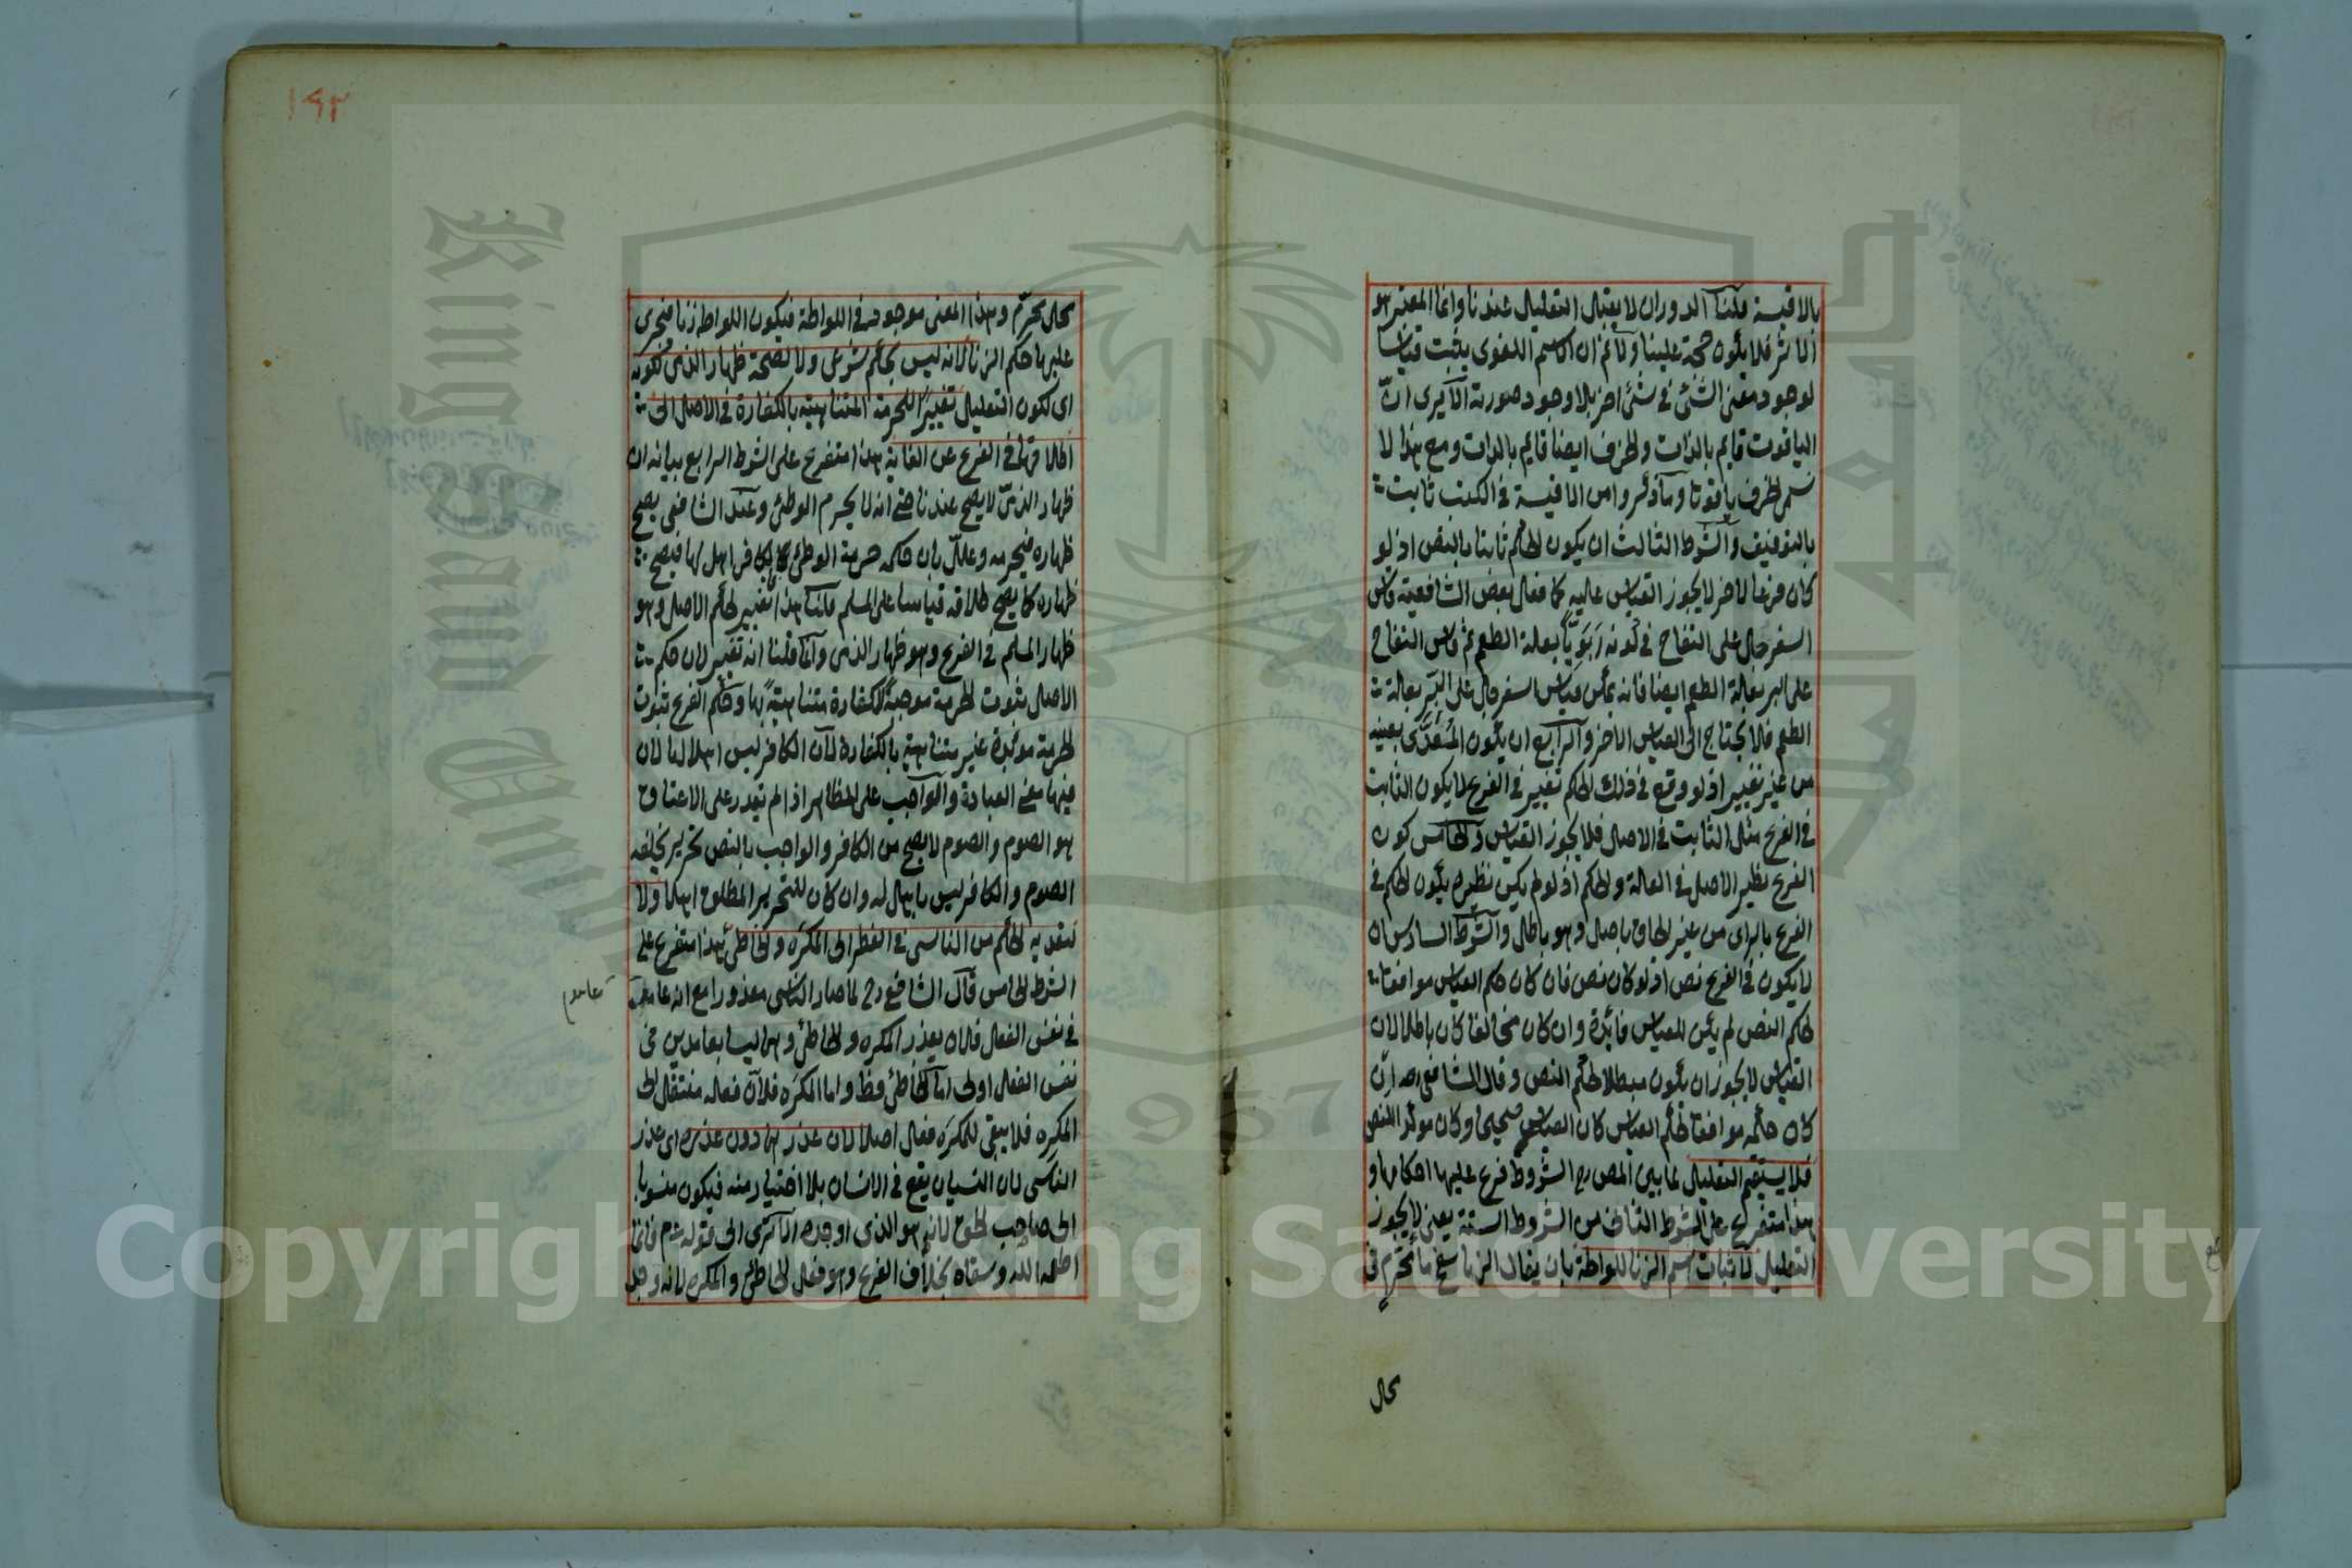 بالاقيسة قلنا الدوران لا يقبل التعليل عندنا وانما المعتبر هو
الاثر فلا يكون حجة علينا ولانم ان الاسم اللغوى يثبت قياسا
لوجود معنى الشئ في شئ اخر بلا وجود صورته الا يرى ان
الياقوت قايم بالذات والخزف ايضا قايم بالذات ومع هذا لا
نسمى الخزف ياقوتا وما ذكروا من الاقيسة في الكتب ثابت
بالتوقيف والشرط الثالث ان يكون الحكم ثابتا بالنص اذ لو
كان فرعا لاخر لا يجوز القياس عليه كما فعل بعض الشافعية قاس
السفرجل على التفاح في كونه ربويا بعلة الطعم ثم قاس التفاح
على البر بعلة الطعم ايضا فانه يمكن قياس السفرجل على البر بعلة
الطعم فلا يحتاج الى القياس الاخر والرابع ان يكون المتعدى بعينه
من غير تغيير اذ لو وقع في ذلك الحكم تغيير في الفرع لا يكون الثابت
في الفرع مثل الثابت في الاصل فلا يجوز القياس والخامس كون
الفرع نظير الاصل في العلة والحكم اذ لو لم يكن نظيره يكون الحكم في
الفرع بالراى من غير الحاق باصل وهو باطل والشرط السادس ان
لا يكون في الفرع نص اذ لو كان نص فان كان حكم القياس موافقا
لحكم النص لم يكن للقياس فائدة وان كان مخالفا كان باطلا لان
القياس لا يجوز ان يكون مبطلا لحكم النص وقال الشافعي رحمه ان
كان حكمه موافقا لحكم القياس كان القياس صحيحا وكان موكدا للنص
فلا يستقيم التعليل لما بين المص رح الشروط فرع عليها احكامها و
هذا متفرع على الشرط الثانى من الشروط الستة يعنى لا يجوز
التعليل لاثبات اسم الزنا للواطة بان يقال الزنا سفح ماء محرم في
محل
١٩٢
محل محرم وهذا المعنى موجود في اللواطة فيكون اللواط زنا فيجرى
عليها حكم الزنا لانه ليس بحكم شرعى ولا لصحة ظهار الذمى لكونه
اى لكون التعليل تغييرا للحرمة المتناهية بالكفارة في الاصل الى
اطلاقها في الفرع عن الغاية هذا متفرع على الشرط الرابع بيانه ان
ظهار الذمى لا يصح عندنا حتى انه لا يحرم الوطئ وعند الشافعى يصح
ظهاره فيحرمه وعلل بان حكمه حرمة الوطئ والكافر اهل لها فيصح
ظهاره كما يصح طلاقه قياسا على المسلم قلنا هذا تغيير لحكم الاصل وهو
ظهار المسلم في الفرع وهو ظهار الذمى وانما قلنا انه تغيير لان حكم
الاصل ثبوت الحرمة موجبة للكفارة متناهية بها وحكم الفرع ثبوت
الحرمة موبدة غير متناهية بالكفارة لان الكافر ليس اهلا لها لان
فيها معنى العبادة والواجب على المظاهر اذا لم يقدر على الاعتاق
هو الصوم والصوم لا يصح من الكافر والواجب بالنص تحرير يخلفه
الصوم والكافر ليس باهل له وان كان للتحرير المطلق اهلا ولا
لتعديه الحكم من الناسى في الفطر الى المكره والخاطئ هذا متفرع على
الشرط الخامس قال الشافعى رح لما صار الناسى معذورا مع انه عامد
عامد
في نفس الفعل فلان يعذر المكره والخاطئ وهما ليسا بعامدين في
نفس الفعل اولى اما الخاطئ فظ واما المكره فلان فعله منتقل الى
المكره فلا يبقى للمكره فعل اصلا لان عذرهما دون عذره اى عذر
الناسى لان النسيان يقع في الانسان بلا اختيار منه فيكون منسوبا
الى صاحب الحق لانه هو الذى اوجده الا ترى الى قوله عم فانما
اطعمه الله وسقاه بخلاف الفرع وهو فعل الخاطئ والمكره لانه وجد
King Saud University
1957
Copyright © King Saud University